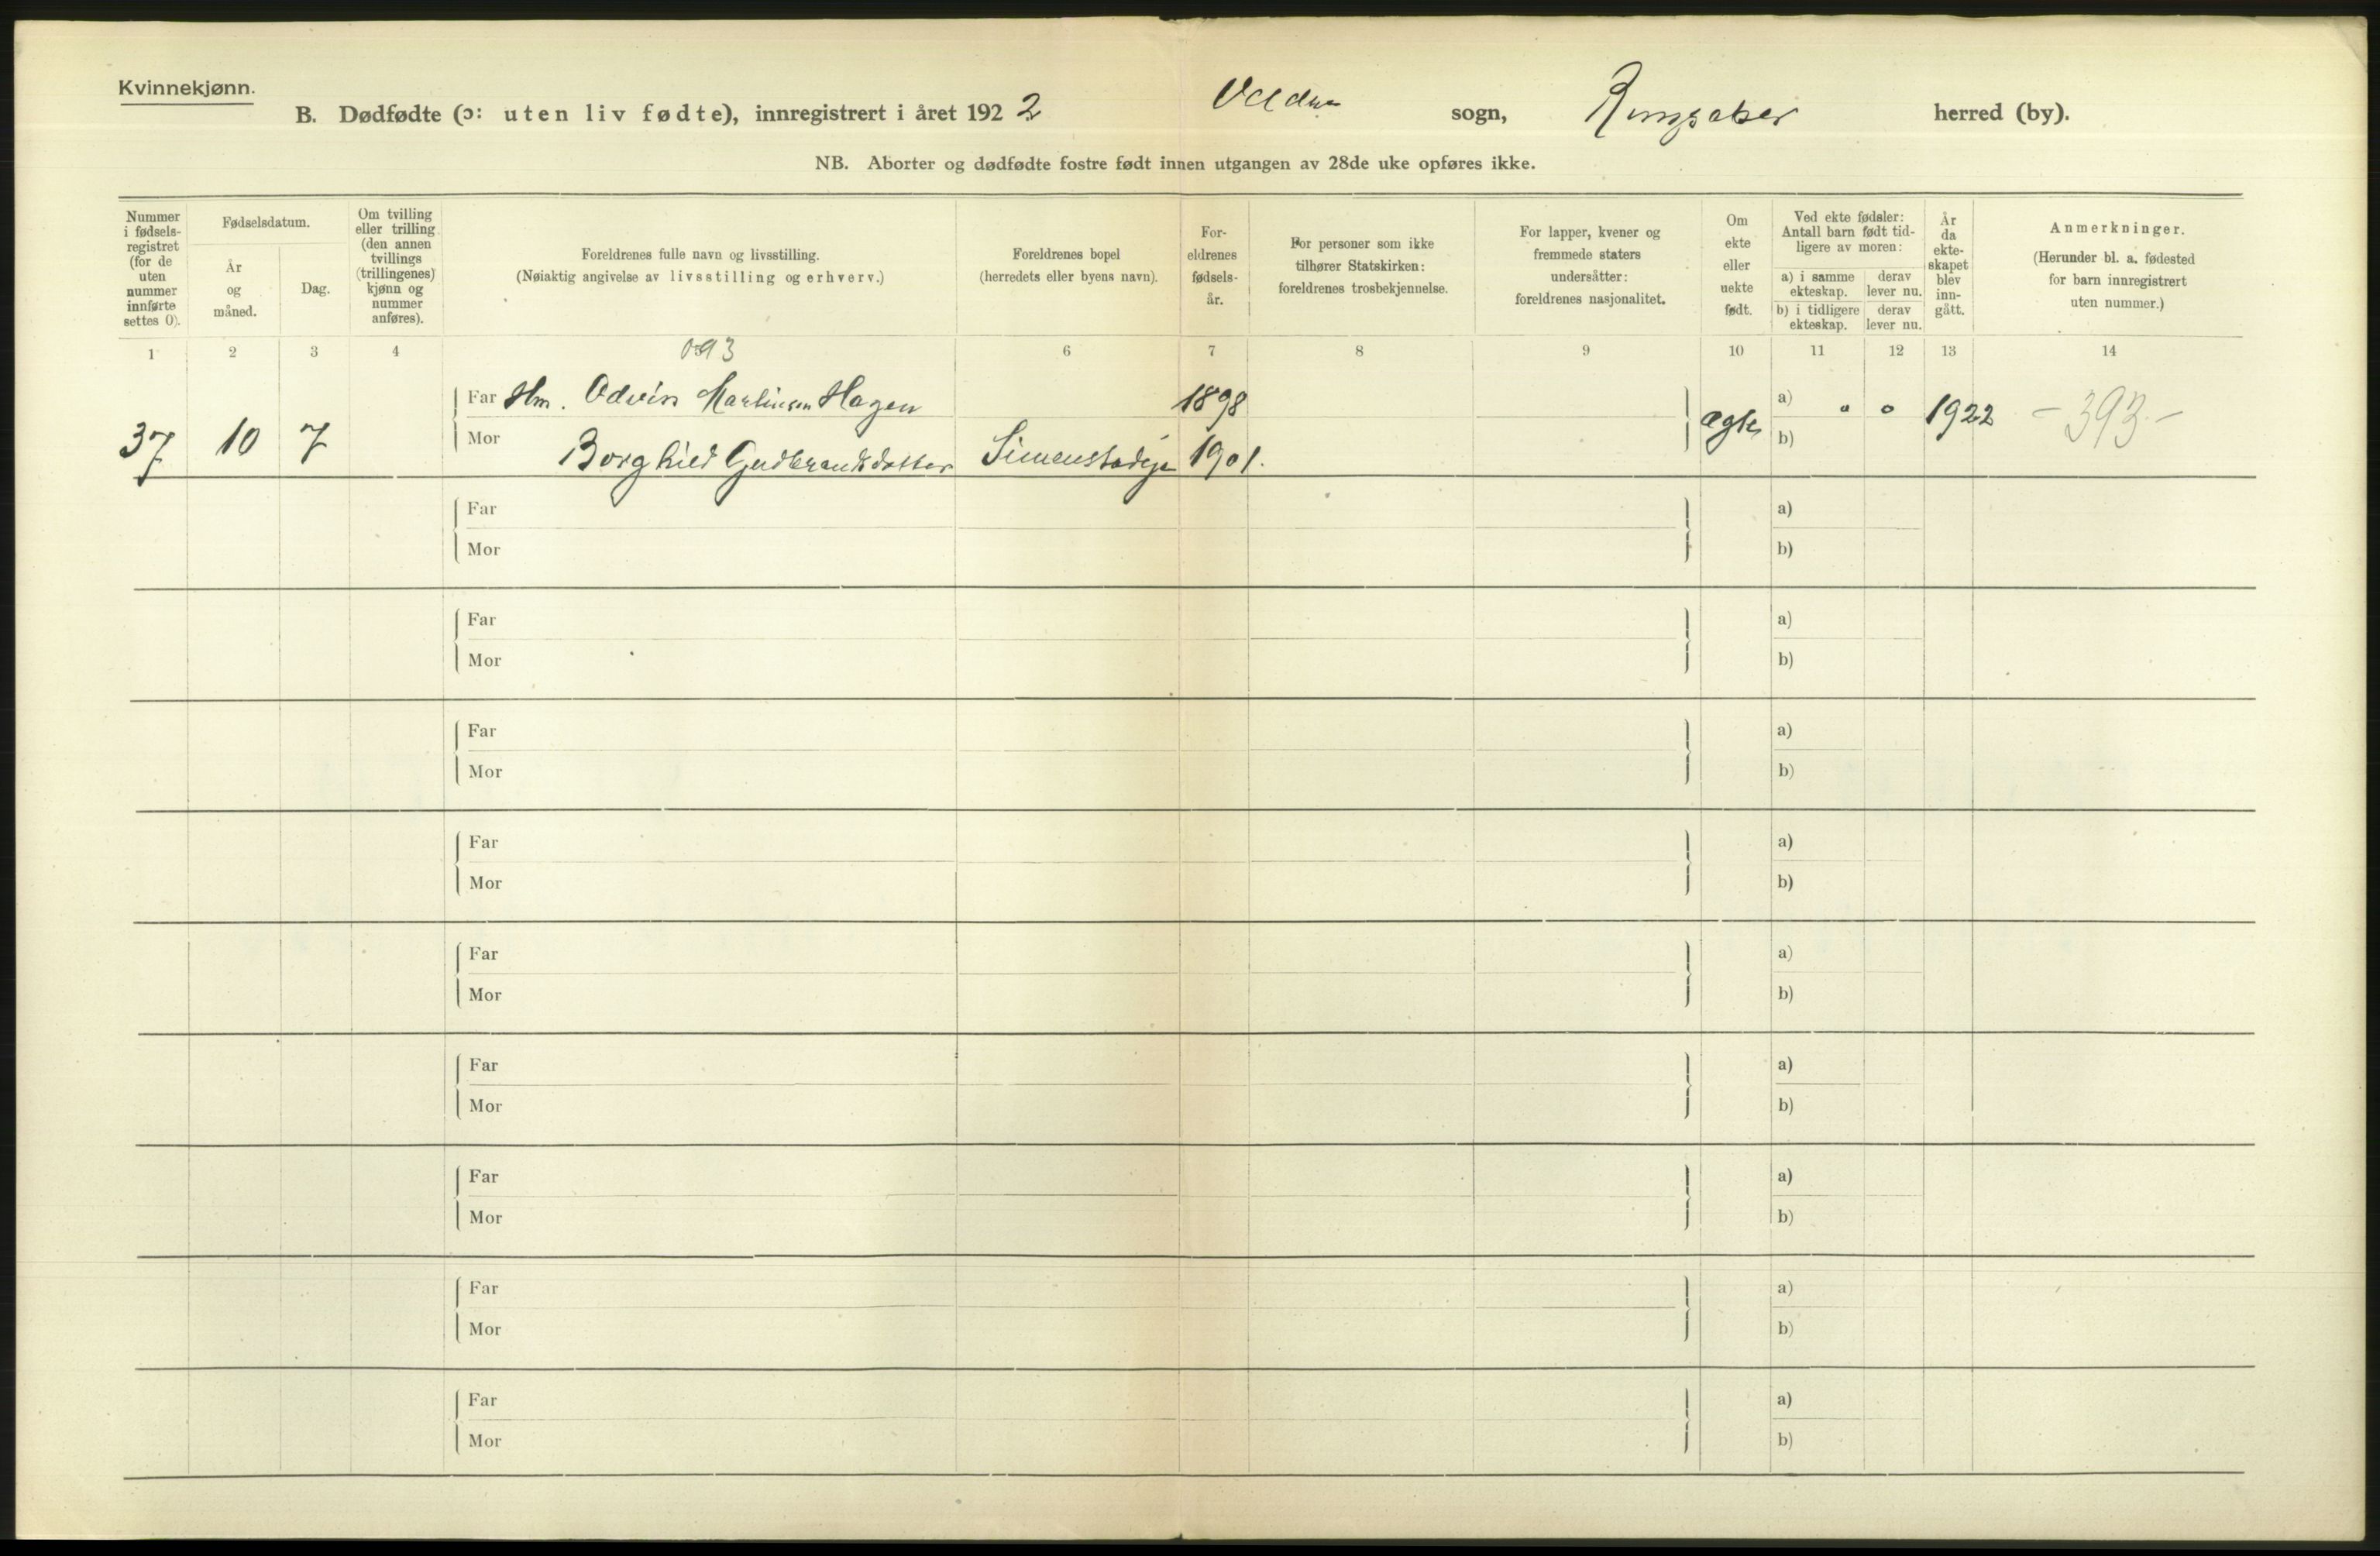 Kvinnekjønn.
B. Dødfødte (ɔ: uten liv fødte), innregistrert i året 1922 sogn, Ringsaker herred (by).
NB. Aborter og dødfødte fostre født innen utgangen av 28de uke opføres ikke.
Nummer i fødsels-registret (for de uten nummer innførte settes 0).
Fødselsdatum.
År og måned.
Dag.
Om tvilling eller trilling (den annen tvillings (trillingenes) kjønn og nummer anføres).
Foreldrenes fulle navn og livsstilling.
(Nøiaktig angivelse av livsstilling og erhverv.)
Foreldrenes bopel
(herredets eller byens navn).
For-eldrenes fødsels-år.
For personer som ikke tilhører Statskirken: foreldrenes trosbekjennelse.
For lapper, kvener og fremmede staters undersåtter: foreldrenes nasjonalitet.
Om ekte eller uekte født.
Ved ekte fødsler: Antall barn født tid-ligere av moren:
a) i samme ekteskap.
derav lever nu.
b) i tidligere ekteskap.
derav lever nu.
År da ekte-skapet blev inn-gått.
Anmerkninger.
(Herunder bl. a. fødested for barn innregistrert uten nummer.)
1 2 3 4 0393 6 7 8 9 10 11 12 13 14
Far Hm. Odvin Martinsen Hagen 1898 a) 0 0
37 10 7 ægte 1922 - 393 -
Mor Borghild Gudbrandsdatter 1901. b)
Far a)
Mor b)
Far a)
Mor b)
Far a)
Mor b)
Far a)
Mor b)
Far a)
Mor b)
Far a)
Mor b)
Far a)
Mor b)
Far a)
Mor b)
Far a)
Mor b)